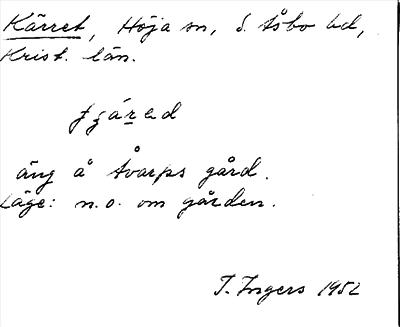 Kärret, Höja sn, S. Åsbo hd,
Krist. län.
äng å Åvarps gård.
Läge: n.o. om gården.
I. Ingers 1952